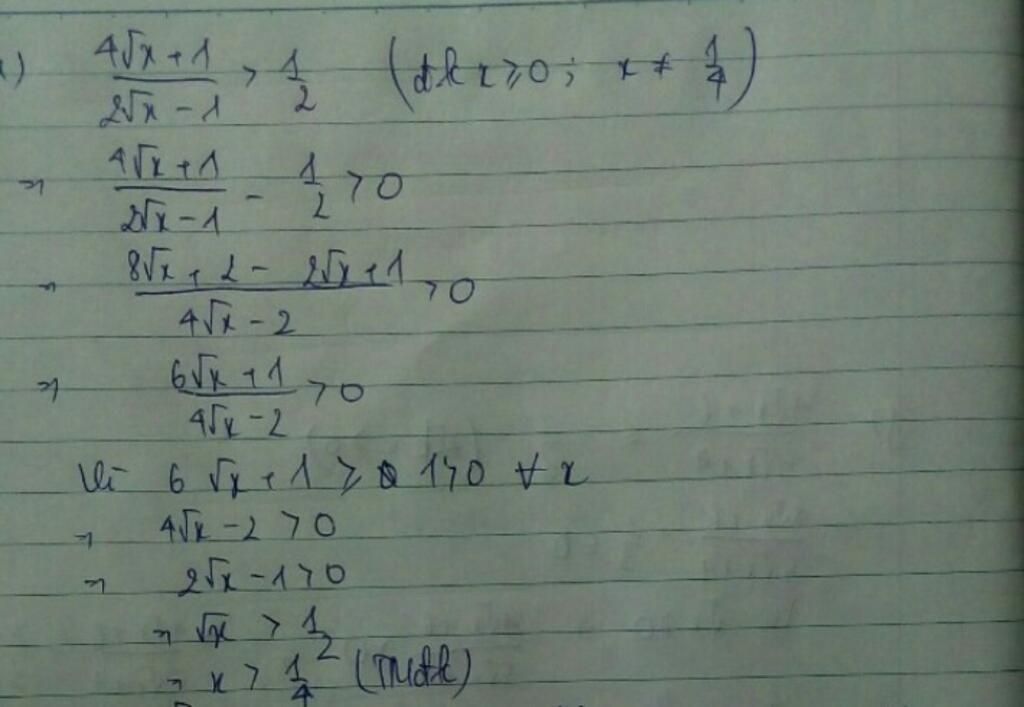 ) (4√x + 1)/(2√x - 1) > 1/2 (đk x ≥ 0 ; x ≠ 1/4)
⇒ (4√x + 1)/(2√x - 1) - 1/2 > 0
⇒ (8√x + 2 - 2√x + 1)/(4√x - 2) > 0
⇒ (6√x + 1)/(4√x - 2) > 0
Vì 6√x + 1 ≥ 1 > 0 ∀ x
⇒ 4√x - 2 > 0
⇒ 2√x - 1 > 0
⇒ √x > 1/2
⇒ x > 1/4 (TMđk)